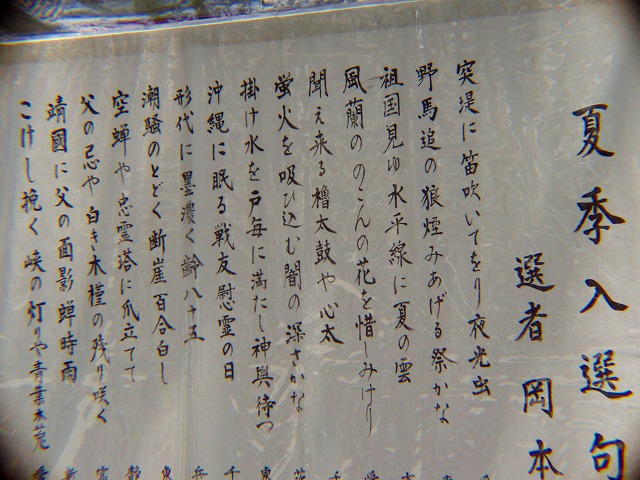 夏季入選句
選者 岡本
突堤に笛吹いてをり夜光虫
野馬追の狼煙みあげる祭かな
祖国見ゆ水平線に夏の雲
風蘭ののこんの花を惜しみけり
聞え来る櫓太鼓や心太
蛍火を吸ひ込む闇の深さかな
掛け水を戸毎に満たし神輿待つ
沖縄に眠る戦友慰霊の日
形代に墨濃く齢八十五
潮騒のとどく断崖百合白し
空蝉や忠霊塔に爪立てて
父の忌や白き木槿の残り咲く
靖國に父の面影蝉時雨
こけし挽く峡の灯りや青葉木菟